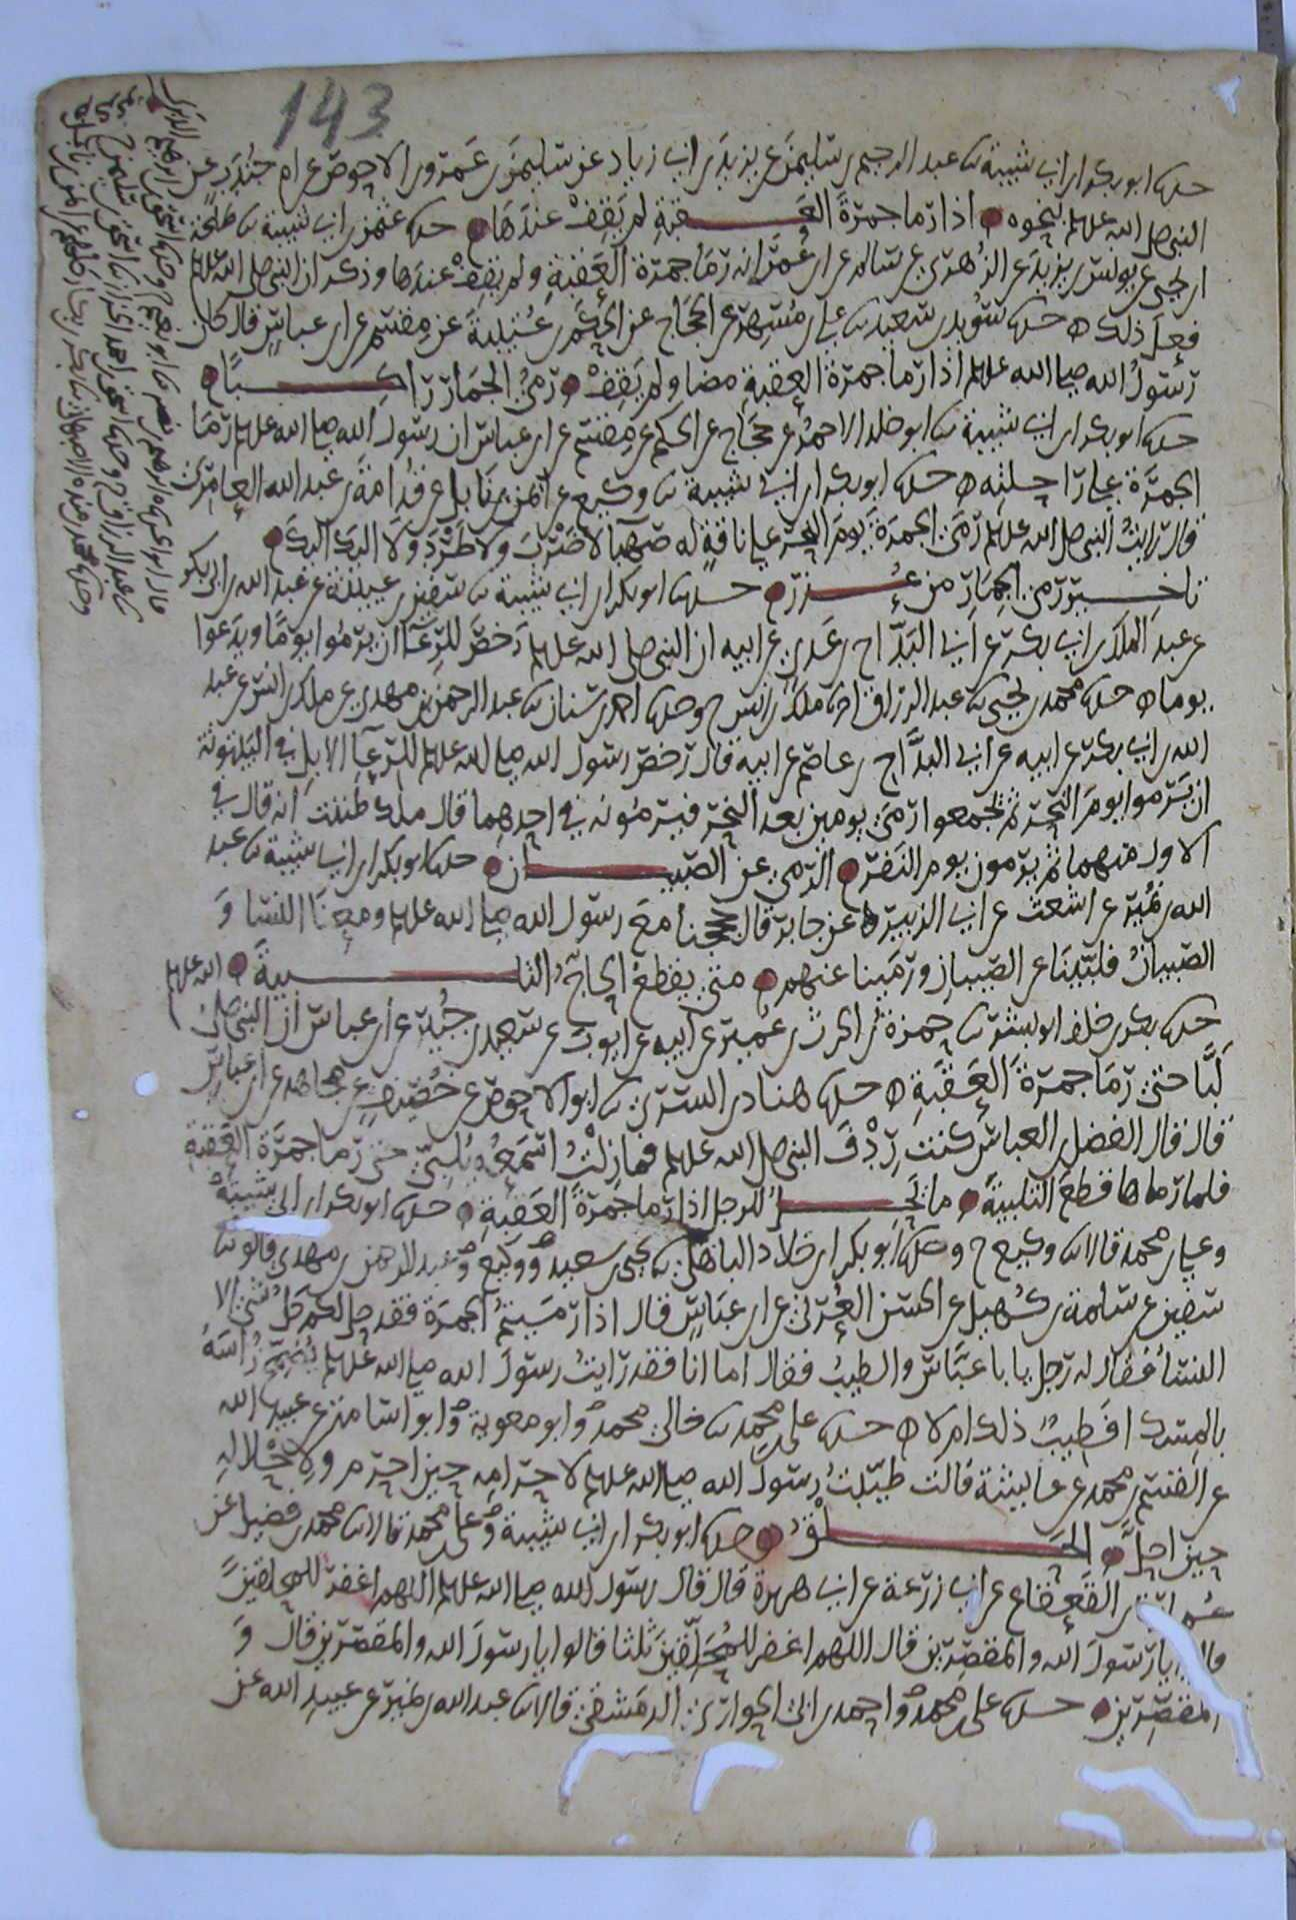 143
حدثنا ابو بكر ابن ابي شيبة ثنا عبد الرحيم بن سليمن عن يزيد بن ابي زياد عن سليمن بن عمرو بن الاحوص عن ام جندب عن
النبي صلى الله عليه وسلم بنحوه اذا رما جمرة العقبة لم يقف عندها حدثنا عثمن بن ابي شيبة ثنا طلحة
ابن يحيى عن يونس بن يزيد عن الزهري عن سالم عن ابن عمر انه رما جمرة العقبة ولم يقف عندها وذكر ان النبي صلى الله عليه وسلم
فعل ذلك حدثنا سويد بن سعيد ثنا علي بن مسهر عن الحجاج عن الحكم بن عتيبة عن مقسم عن ابن عباس قال كان
رسول الله صلى الله عليه وسلم اذا رما جمرة العقبة مضا ولم يقف رمي الجمار راكبا
حدثنا ابو بكر ابن ابي شيبة ثنا ابو خلد الاحمر عن حجاج عن الحكم عن مقسم عن ابن عباس ان رسول الله صلى الله عليه وسلم رما
الجمرة على راحلته حدثنا ابو بكر ابن ابي شيبة ثنا وكيع عن ايمن بن نابل عن قدامة بن عبد الله العامري
قال رايت النبي صلى الله عليه وسلم رمى الجمرة يوم النحر على ناقة له صهبا لا ضرب ولا طرد ولا اليك اليك
تاخير رمي الجمار من عذر حدثنا ابو بكر ابن ابي شيبة ثنا سفين بن عيينة عن عبد الله بن ابي بكر
عن عبد الملك بن ابي بكر عن ابي البداح بن عدي عن ابيه ان النبي صلى الله عليه وسلم رخص للرعا ان يرموا يوما ويدعوا
يوما حدثنا محمد بن يحيى ثنا عبد الرزاق انا ملك بن انس ح وحدثنا احمد بن سنان ثنا عبد الرحمن بن مهدي عن ملك بن انس عن عبد
الله بن ابي بكر عن ابيه عن ابي البداح بن عاصم عن ابيه قال رخص رسول الله صلى الله عليه وسلم للرعا الابل في البيتوتة
ان يرموا يوم النحر ثم يجمعوا رمي يومين بعد النحر فيرمونه في احدهما قال ملك ظننت انه قال في
الاول منهما ثم يرمون يوم النفر الرمي عن الصبيان حدثنا ابو بكر ابن ابي شيبة ثنا عبد
الله بن نمير عن اشعث عن ابي الزبير عن جابر قال حججنا مع رسول الله صلى الله عليه وسلم ومعنا النسا و
الصبيان فلبينا عن الصبيان ورمينا عنهم متى يقطع الحاج التلبية
حدثنا بكر بن خلف ابو بشر ثنا حمزة بن الحرث بن عمير عن ابيه عن ايوب عن سعيد بن جبير عن ابن عباس ان النبي صلى الله عليه وسلم
لبا حتى رما جمرة العقبة حدثنا هناد بن السري ثنا ابو الاحوص عن خصيف عن مجاهد عن ابن عباس
قال قال الفضل بن العباس كنت ردف النبي صلى الله عليه وسلم فما زلت اسمعه يلبي حتى رما جمرة العقبة
فلما رماها قطع التلبية ما يحل للرجل اذا رما جمرة العقبة حدثنا ابو بكر ابن ابي شيبة
وعلي بن محمد قالا ثنا وكيع ح وحدثنا ابو بكر ابن خلاد الباهلي ثنا يحيى بن سعيد ووكيع وعبد الرحمن بن مهدي قالوا ثنا
سفين عن سلمة بن كهيل عن الحسن العرني عن ابن عباس قال اذا رميتم الجمرة فقد حل لكم كل شي الا
النسا فقال له رجل يا با عباس والطيب فقال اما انا فقد رايت رسول الله صلى الله عليه وسلم يضمخ راسه
بالمسك افطيب ذلك ام لا حدثنا علي بن محمد ثنا خالي محمد وابو معوية وابو اسامة عن عبيد الله
عن القسم بن محمد عن عايشة قالت طيبت رسول الله صلى الله عليه وسلم لاحرامه حين احرم ولاحلاله
حين احل الحلق حدثنا ابو بكر ابن ابي شيبة وعلي بن محمد قالا ثنا محمد بن فضيل عن
عمارة بن القعقاع عن ابي زرعة عن ابي هريرة قال قال رسول الله صلى الله عليه وسلم اللهم اغفر للمحلقين
قالوا يا رسول الله والمقصرين قال اللهم اغفر للمحلقين ثلثا قالوا يا رسول الله والمقصرين قال و
المقصرين حدثنا علي بن محمد واحمد بن ابي الحواري الدمشقي قالا ثنا عبد الله بن نمير عن عبيد الله عن